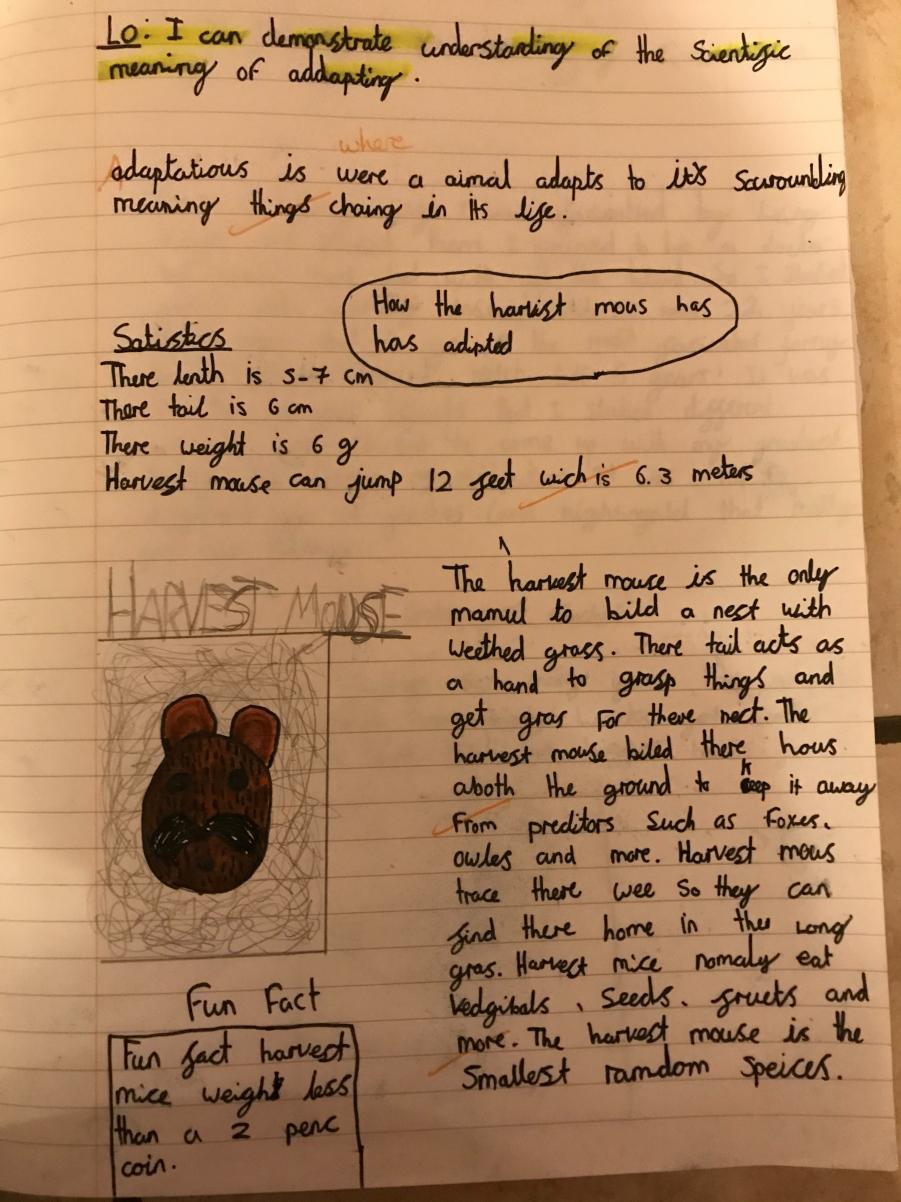 Lo: I can demonstrate understanding of the Scientific
meaning of addapting.
where
Adaptatious is were a aimal adapts to it's Sauroundling
meaning things chaing in its life.
How the harvist mous has
has adipted
Satistics
There lenth is 5-7 cm
There tail is 6 cm
There weight is 6 g
Harvest mouse can jump 12 feet wich is 6.3 meters
HARVEST MOUSE
The harvest mouse is the only
mamul to bild a nest with
weethed grass. There tail acts as
a hand to grasp things and
get gras For there nect. The
harvest mouse biled there hous
aboth the ground to keep it away
From preditors Such as Foxes,
owles and more. Harvest mous
trace there wee So they can
find there home in the Long
gras. Harvest mice nomaly eat
Vedgibals, Seeds, fructs and
more. The harvest mouse is the
Smallest ramdom Speices.
Fun Fact
Fun fact harvest
mice weight less
than a 2 penc
coin.